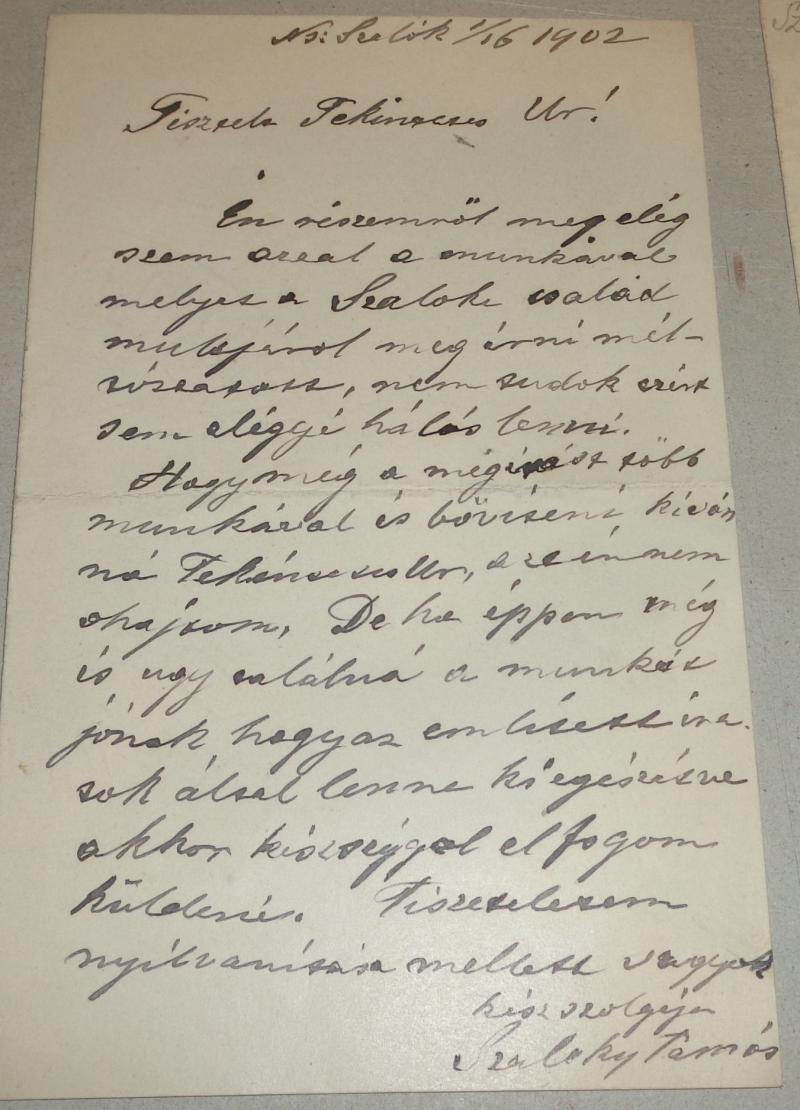 N. Szalók 1/16 1902
Tisztelt Tekintetes Ur!
Én részemről meg elég
szem azzal a munkával
melyet a Szaloki család
multjárol meg irni mél-
tóztatott, nem tudok ezért
sem eléggé hálás lenni.
Hogy még a még több
munkával is bőviteni kíván
ná Tekintetes Ur, azt én nem
ohajtom, De ha éppen még
is ugy találná a munkát
jónak, hogy az emlitett ira-
tok által lenne ki egészitve
akkor készséggel el fogom
küldeni. Tiszteletem
nyilvanitása mellett vagyok
kész szolgája
Szaloky Tamás